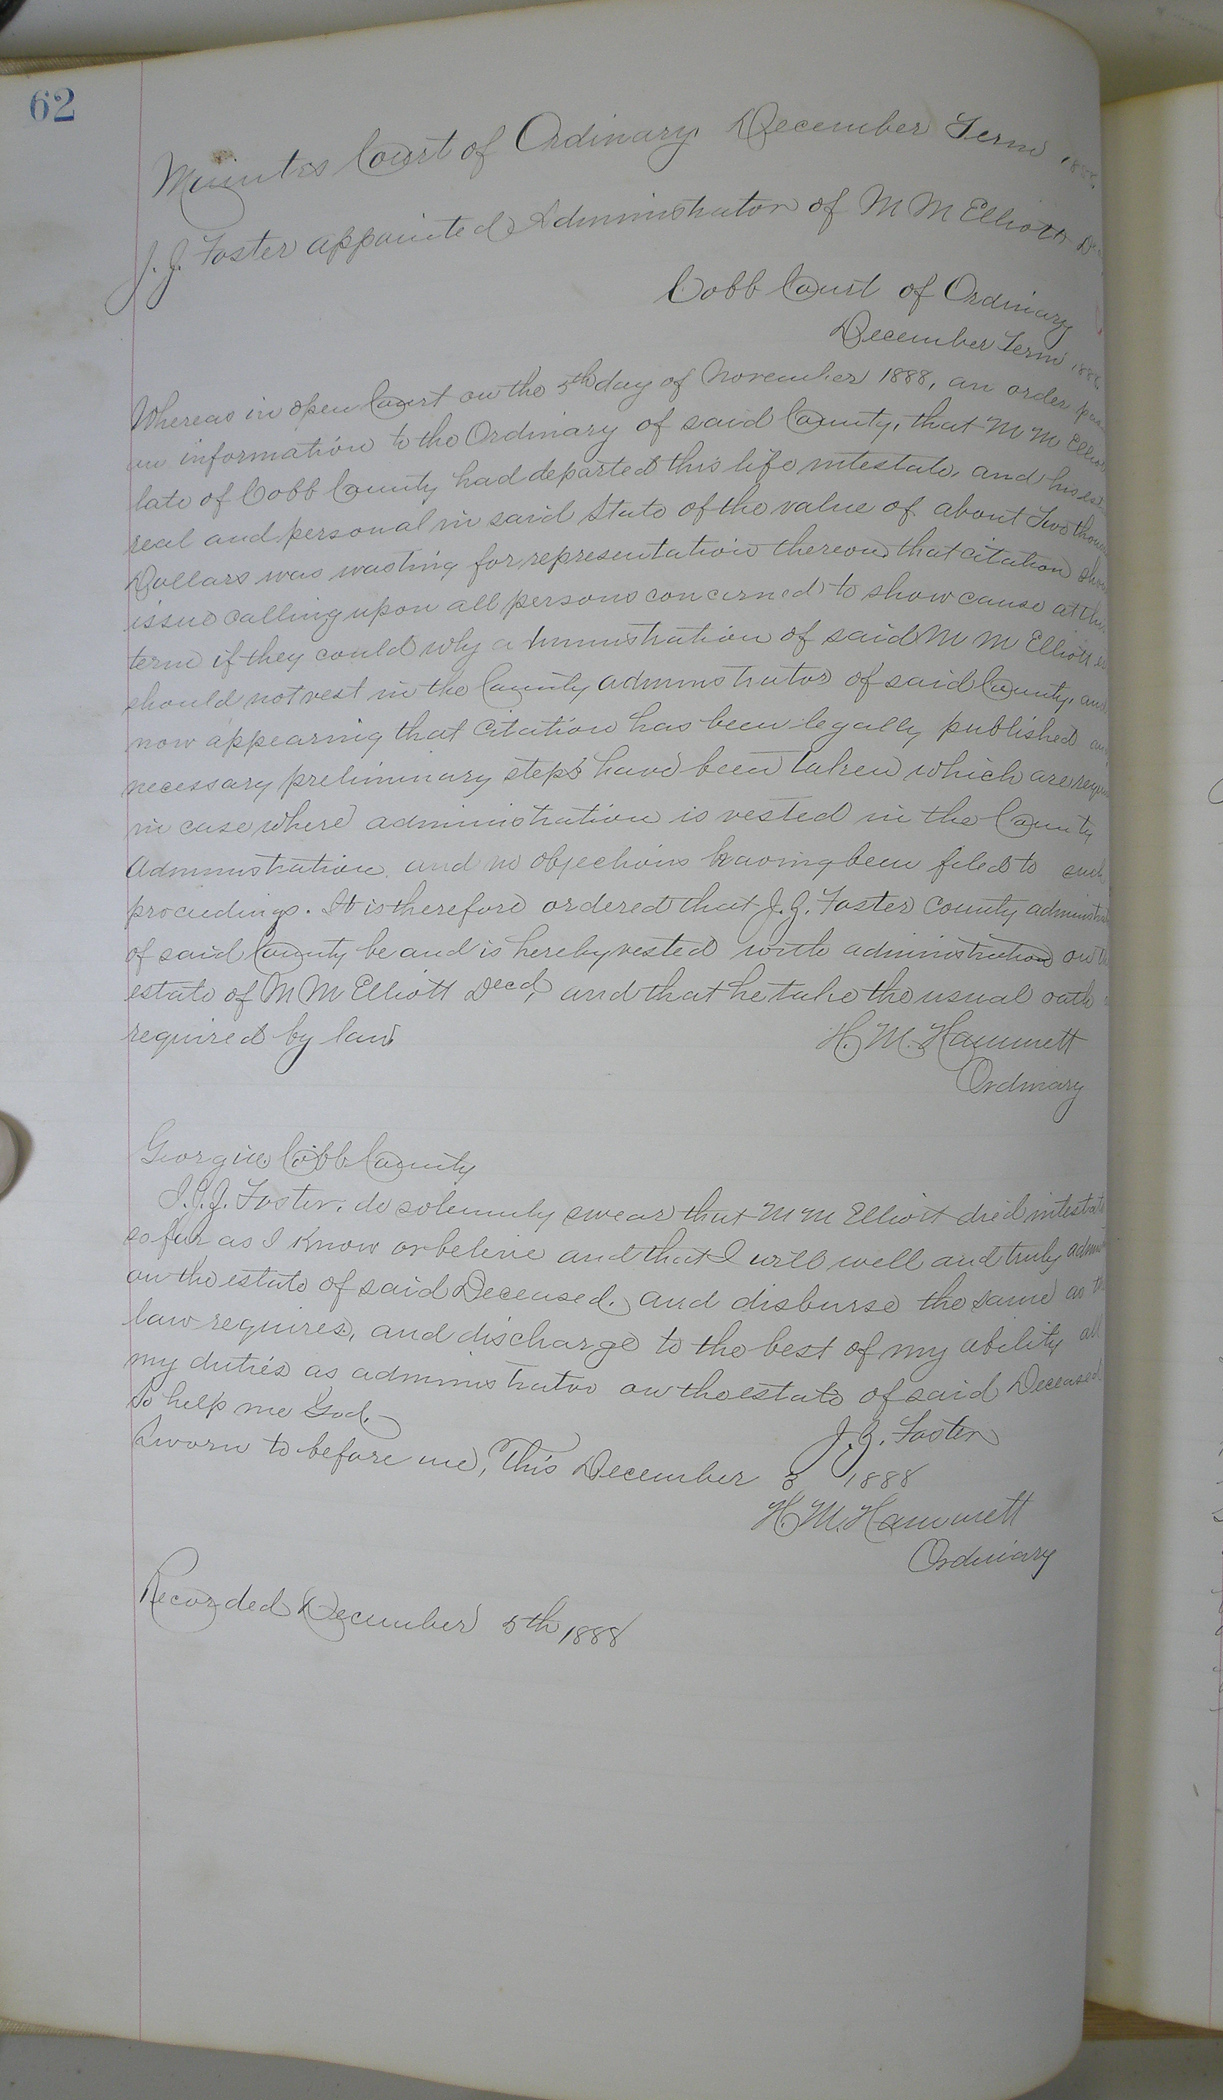 62
Minutes Court of Ordinary December Term 1888.
J. J. Foster appointed Administrator of M M Elliott
Cobb Court of Ordinary
December Term 1888
Whereas in open Court on the 5th day of November 1888, an order
on information to the Ordinary of said County, that M M Elliott
late of Cobb County had departed this life intestate, and his
real and personal in said State of the value of about Two
Dollars was wasting for representation thereon that citation
issue calling upon all persons concerned to show cause at this
term if they could why administration of said M M Elliott
should not vest in the County administrator of said County, and
now appearing that citation has been legally published
necessary preliminary steps have been taken which are
in case where administration is vested in the County
Administration, and no objections having been filed to such
proceedings. It is therefore ordered that J. J. Foster County
of said County be and is hereby vested with administration on
estate of M M Elliott Decd, and that he take the usual oath
required by law
H. M. Hammett
Ordinary
Georgia, Cobb County
I. J. J. Foster, do solemnly swear that M M Elliott died intestate
so far as I know or believe and that I will well and truly
on the estate of said Deceased, and disburse the same as
law requires, and discharge to the best of my ability all
my duties as administrator on the estate of said Deceased
So help me God.
J. J. Foster
Sworn to before me, This December 3 1888
H. M. Hammett
Ordinary
Recorded December 5th 1888